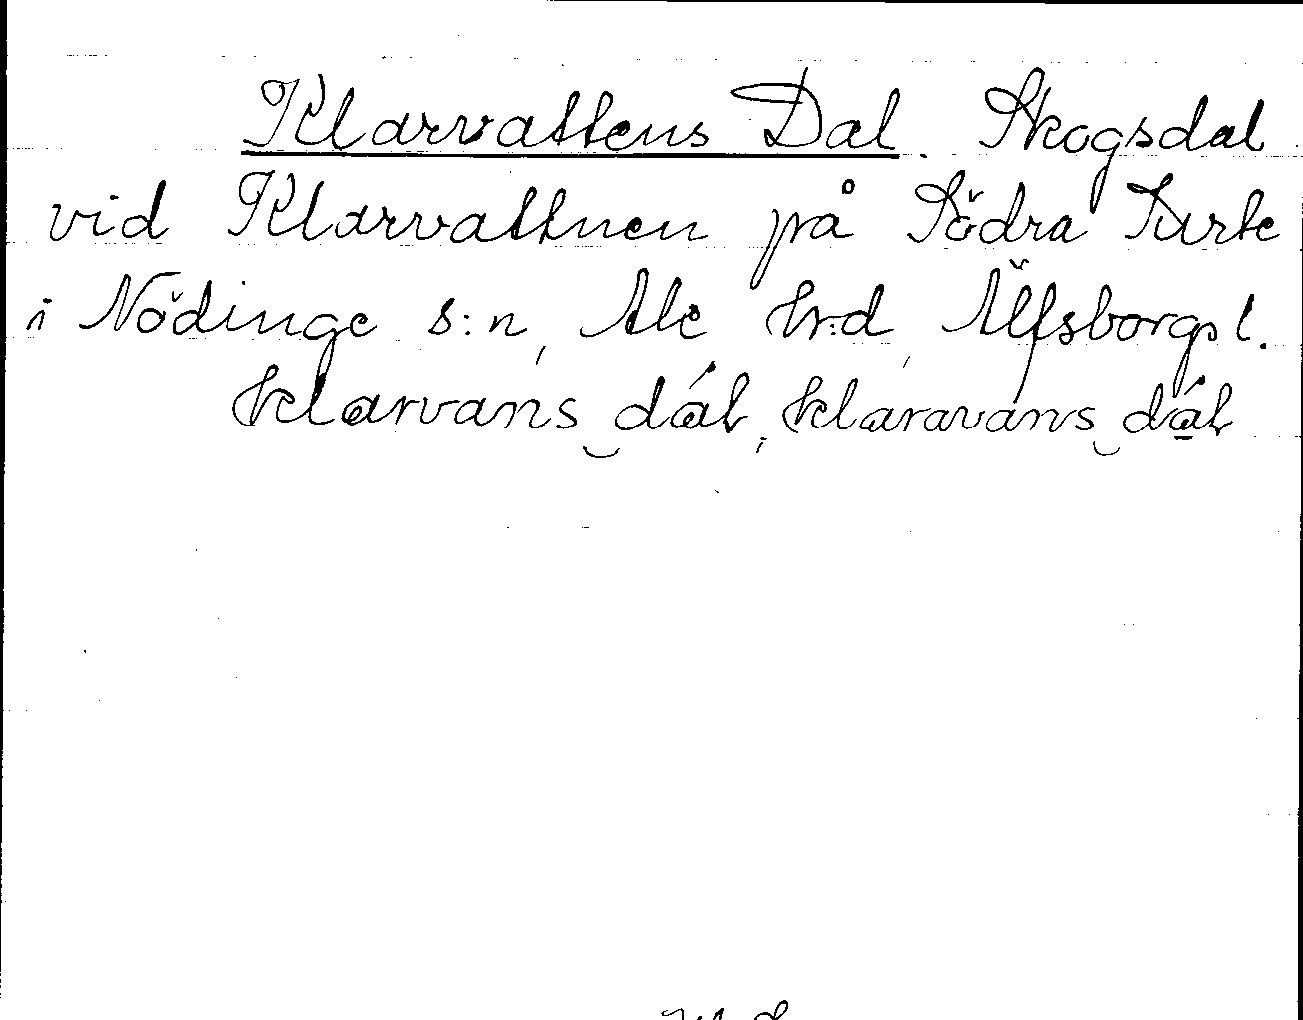 Klarvattens Dal. Skogsdal
vid Klarvattnen på Södra Surte
i Nödinge s:n, Ale hr:d, Älfsborgs l.
klarvans dál, klaravans dál